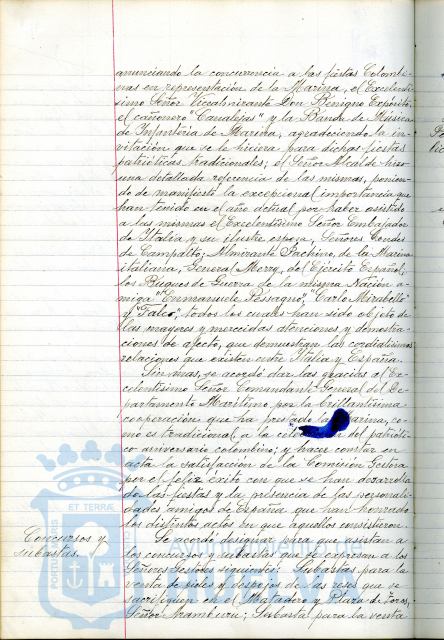 anunciando la concurrencia a las fiestas Colombi-
nas en representación de la Marina, el Excelentí-
simo Señor Vicealmirante Don Benigno Expósito,
el cañonero "Canalejas" y la Banda de Música
de Infantería de Marina, agradeciendo la in-
vitación que se le hiciera para dichas fiestas
patrióticas tradicionales; el Señor Alcalde hizo
una detallada referencia de las mismas, ponien-
do de manifiesto la excepcional importancia que
han tenido en el año actual por haber asistido
a las mismas el Excelentísimo Señor Embajador
de Italia y su ilustre esposa, Señores Condes
de Campalto; Almirante Pachino, de la Marina
italiana, General Merry, del Ejército Español;
los Buques de Guerra de la misma Nación a-
miga "Enmanuele Pessagno", "Carlo Mirabello"
y "Falco", todos los cuales han sido objeto de
las mayores y merecidas atenciones y demostra-
ciones de afecto, que demuestran las cordialísimas
relaciones que existen entre Italia y España.
Sin mas, se acordó dar las gracias al Ex-
celentísimo Señor Comandante General del De-
partamento Marítimo por la brillantísima
cooperación que ha prestado la Marina, co-
mo es tradicional, a la del patrióti-
co aniversario colombino; y hacer constar en
acta la satisfacción de la Comisión Gestora
por el feliz éxito con que se han desarrolla-
do las fiestas y la presencia de las personali-
dades amigas de España que han honrado
los distintos actos en que aquellos consistieron.
Concursos y
subastas.
Se acordó designar para que asistan a
los concursos y subastas que se expresan a los
Señores Gestores siguientes: Subastas para la
venta de pieles y despojos de las reses que se
sacrifiquen en el Matadero y Plaza de Toros,
Señor Aramburu; Subasta para la venta
PORTUS MARIS
ET TERRAE